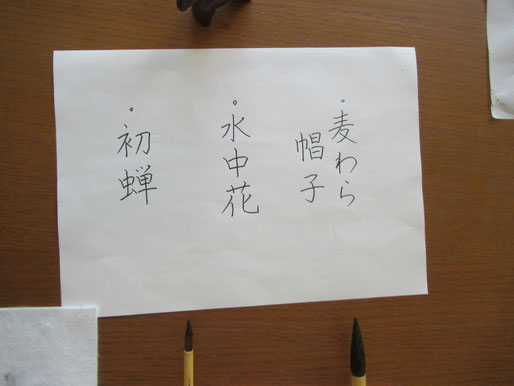 。麦わら
帽子
。水中花
。初蝉